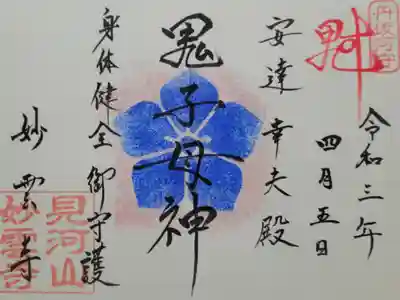 令和三年
四月五日
安達幸夫殿
鬼子母神
身体健全 御守護
妙雲寺
見河山
妙雲寺